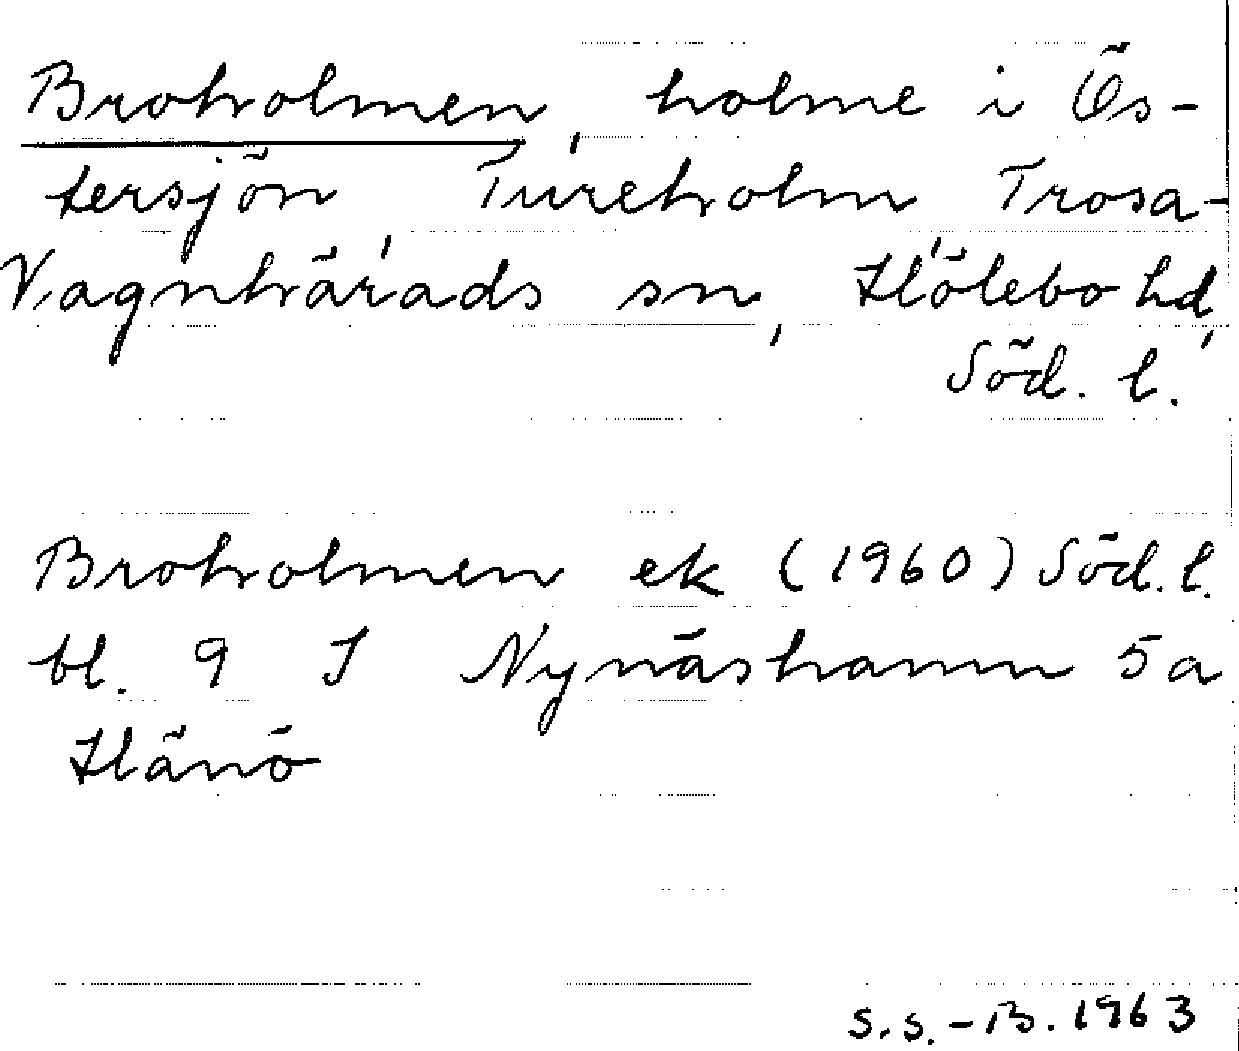 Broholmen, holme i Ös-
tersjön, Tureholm, Trosa-
Vagnhärads sn, Hölebo hd,
Söd. l.
Broholmen ek (1960) Söd. l.
bl. 9 I Nynäshamn 5a
Hånö
S.S.-B. 1963